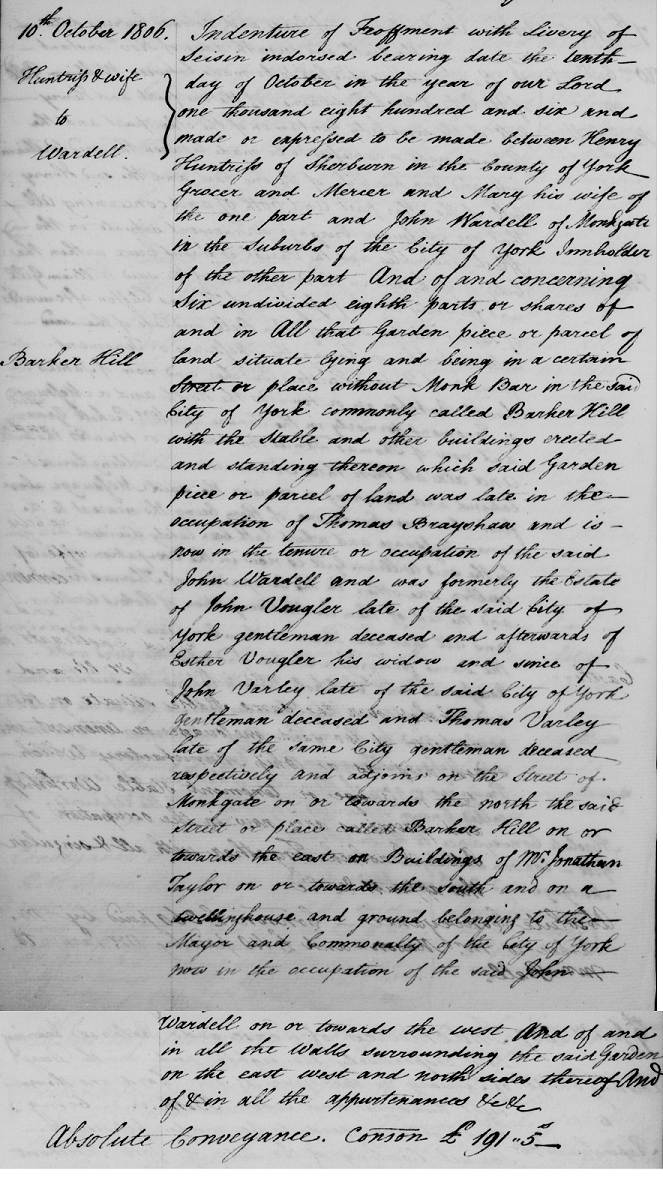 10th October 1806.
Huntriss & wife
to
Wardell.
Barker Hill
Indenture of Feoffment with Livery of
Seisin indorsed bearing date the tenth
day of October in the year of our Lord
one thousand eight hundred and six and
made or expressed to be made between Henry
Huntriss of Sherburn in the County of York
Grocer and Mercer and Mary his wife of
the one part and John Wardell of Monkgate
in the Suburbs of the City of York Innholder
of the other part And of and concerning
Six undivided eighth parts or shares of
and in All that Garden piece or parcel of
land situate lying and being in a certain
Street or place without Monk Bar in the said
City of York commonly called Barker Hill
with the Stable and other buildings erected
and standing thereon which said Garden
piece or parcel of land was late in the
occupation of Thomas Brayshaw and is
now in the tenure or occupation of the said
John Wardell and was formerly the Estate
of John Vougler late of the said City of
York gentleman deceased and afterwards of
Esther Vougler his widow and since of
John Varley late of the said City of York
gentleman deceased and Thomas Varley
late of the same City gentleman deceased
respectively and adjoins on the Street of
Monkgate on or towards the north the said
Street or place called Barker Hill on or
towards the east on Buildings of Mr. Jonathan
Taylor on or towards the south and on a
dwellinghouse and ground belonging to the
Mayor and Commonalty of the City of York
now in the occupation of the said John
Wardell on or towards the west And of and
in all the Walls surrounding the said Garden
on the east west and north sides thereof And
of & in all the appurtenances &c &c
Absolute Conveyance. Conson £191..5s